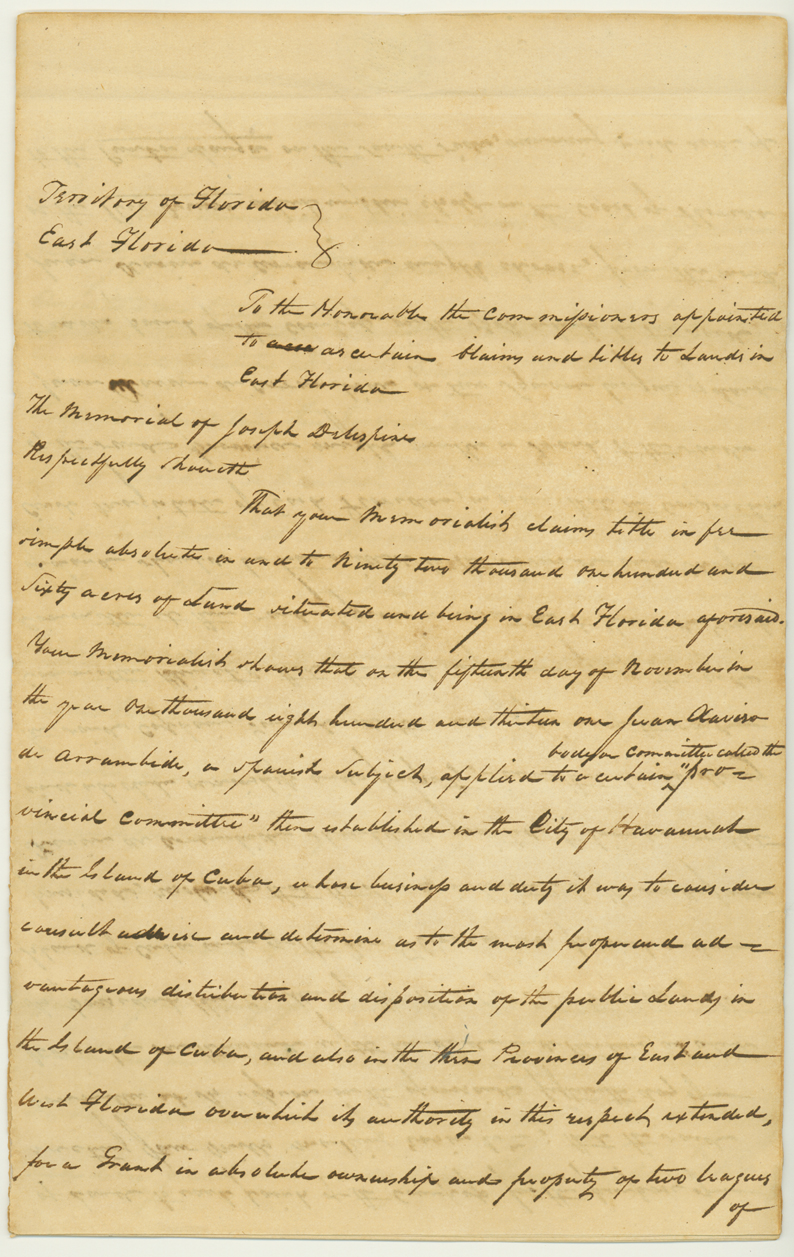 Territory of Florida
East Florida
To the Honorable the Commissioners appointed
to ascertain Claims and titles to Lands in
East Florida
The Memorial of Joseph Delespine
Respectfully Sheweth
That your Memorialist claims title in fee
simple absolute in and to Ninety two thousand one hundred and
Sixty acres of Land situated and being in East Florida aforesaid.
Your Memorialist shows that on the fifteenth day of November in
the year One thousand eight hundred and thirteen one Juan Xavier
de Arrambide, a Spanish Subject, applied to a certain body or committee called the "pro=
vincial Committee" then established in the City of Havannah
in the Island of Cuba, whose business and duty it was to consider
consult advise and determine as to the most proper and ad=
vantageous distribution and disposition of the public Lands in
the Island of Cuba, and also in the then Provinces of East and
West Florida over which its authority in this respect extended,
for a Grant in absolute ownership and property of two leagues
of